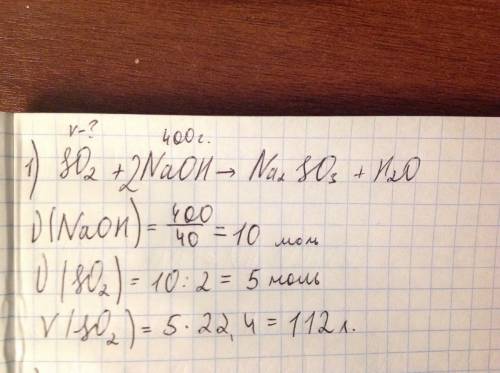 V-? 400г.
1) SO₂ + 2NaOH → Na₂SO₃ + H₂O
ν(NaOH) = 400/40 = 10 моль
ν(SO₂) = 10 : 2 = 5 моль
V(SO₂) = 5 · 22,4 = 112 л.